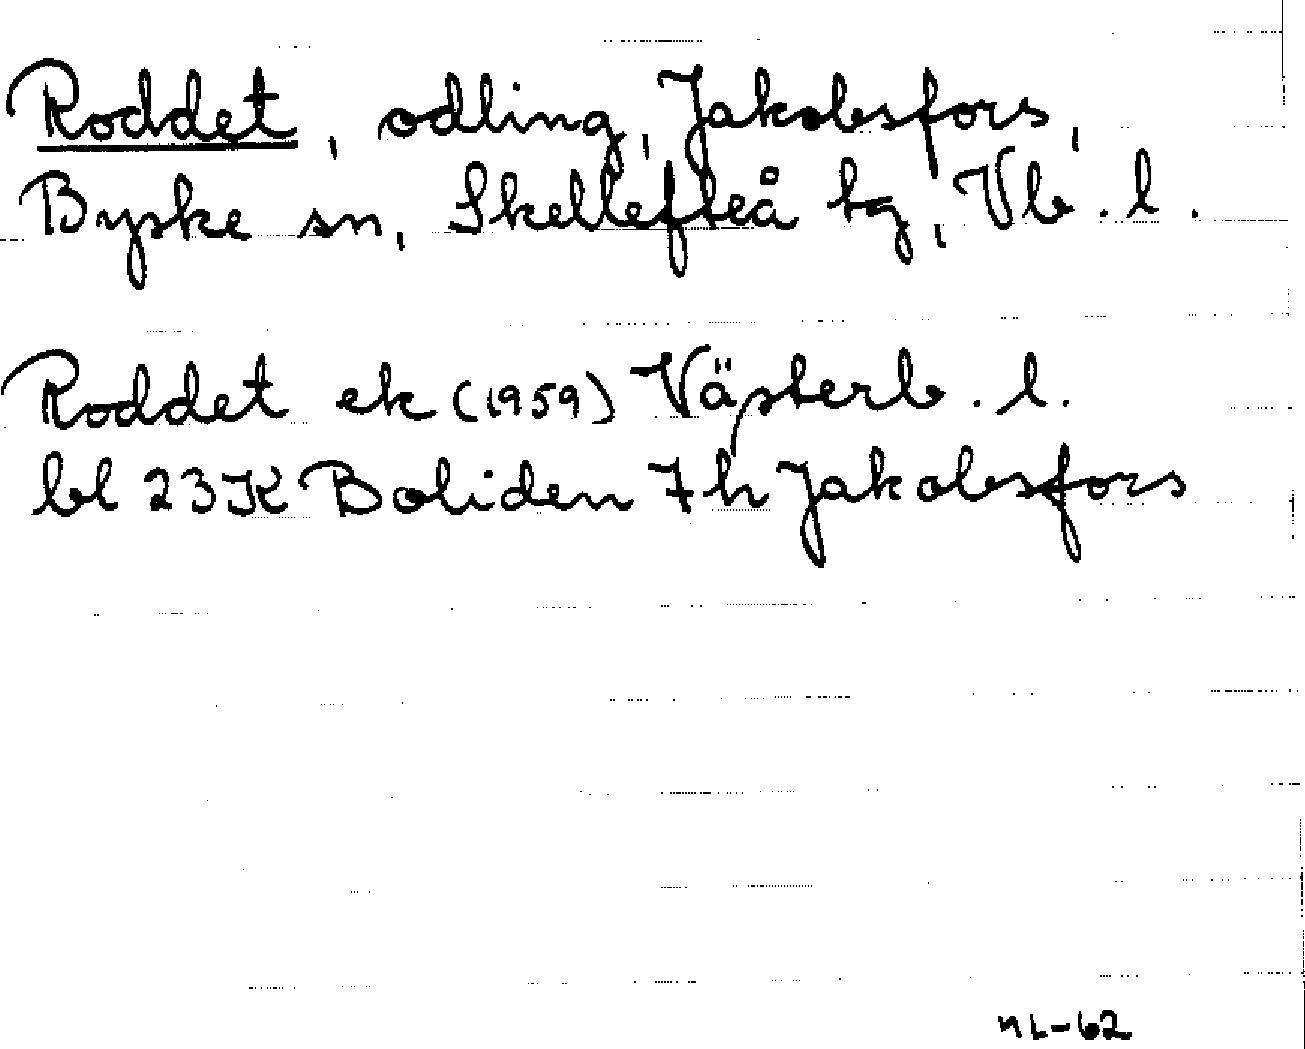 Roddet, odling, Jakobsfors,
Byske sn, Skellefteå tg, Vb. l.
Roddet ek (1959) Västerb. l.
bl 23K Boliden 7h Jakobsfors
NL-62